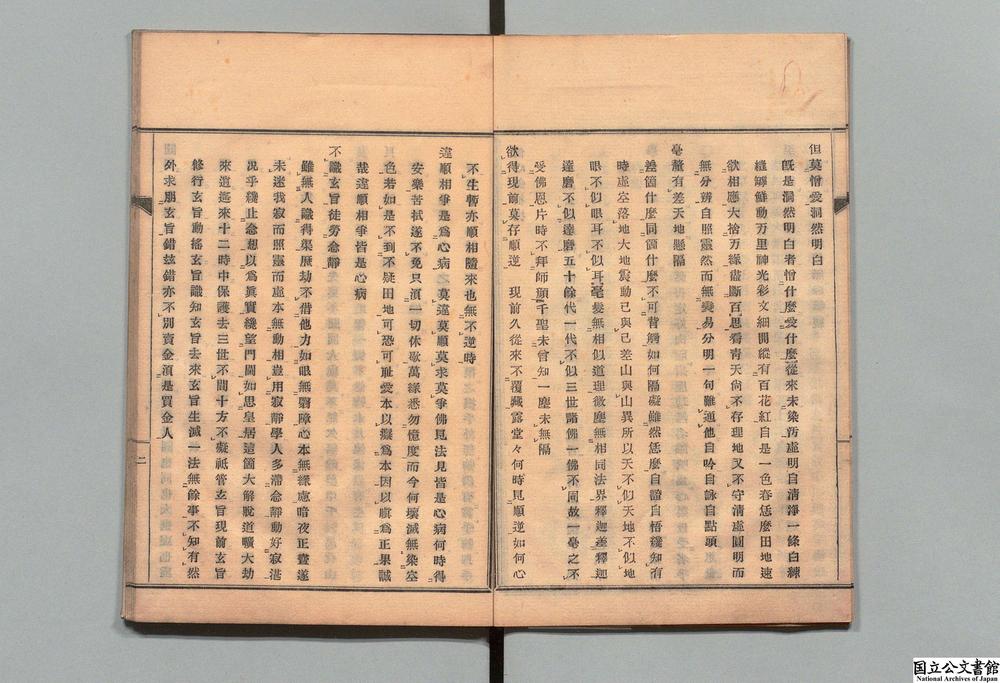 但莫憎愛洞然明白
既是洞然明白者憎什麼愛什麼從來未染汚虛明自清淨一條白練
縫罅鮮動万里神光彩文細開縱有百花紅自是一色春恁麼田地速
欲相應大拾万緣盡斷百思看靑天尙不存理地又不守清虛圓明而
無分辨自照靈然而無變易分明一句難通他自吟自詠自點頭
毫釐有差天地懸隔
差箇什麼同箇什麼不可背觸如何隔礙雖然恁麼自證自悟纔知有
時虛空落地大地震動己與己差山與山異所以天不似天地不似地
眼不似眼耳不似耳毫髮無相似道理微塵無相同法界釋迦差釋迦
達磨不似達磨五十餘代一代不似三世諸佛一佛不同故一毫之不
受佛恩片時不拜師顏千聖未曾知一塵未無隔
欲得現前莫存順逆
現前久從來不覆藏露堂々何時見順逆如何心
不生暫亦順相隨來也無不逆時
違順相爭是爲心病
莫違莫順莫求莫爭佛見法見皆是心病何時得
安樂苦拭遂不免只須一切休歇萬緣悉勿憶度而今何壞滅無染室
色若如是不到不疑田地可恐可耻愛本以癡爲本因以嗔爲正果誠
哉違順相爭皆是心病
不識玄旨徒勞念靜
雖無人識得渠歷劫不借他力如眼無翳障心本無緣慮暗夜正晝遂
未迷我寂而照靈而虛本無動相豈用寂靜學人多滯念靜動好寂湛
况乎纔止念想以爲眞實纔望門閫如思皇居這箇大解脫道曠大劫
來逍遙來十二時中保護去三世不間十方不礙祗管玄旨現前玄旨
修行玄旨動搖玄旨識知玄旨去來玄旨生滅一法無餘事不知有然
外求朋玄旨錯玆錯亦不別賣金須是買金人
二
国立公文書館
National Archives of Japan